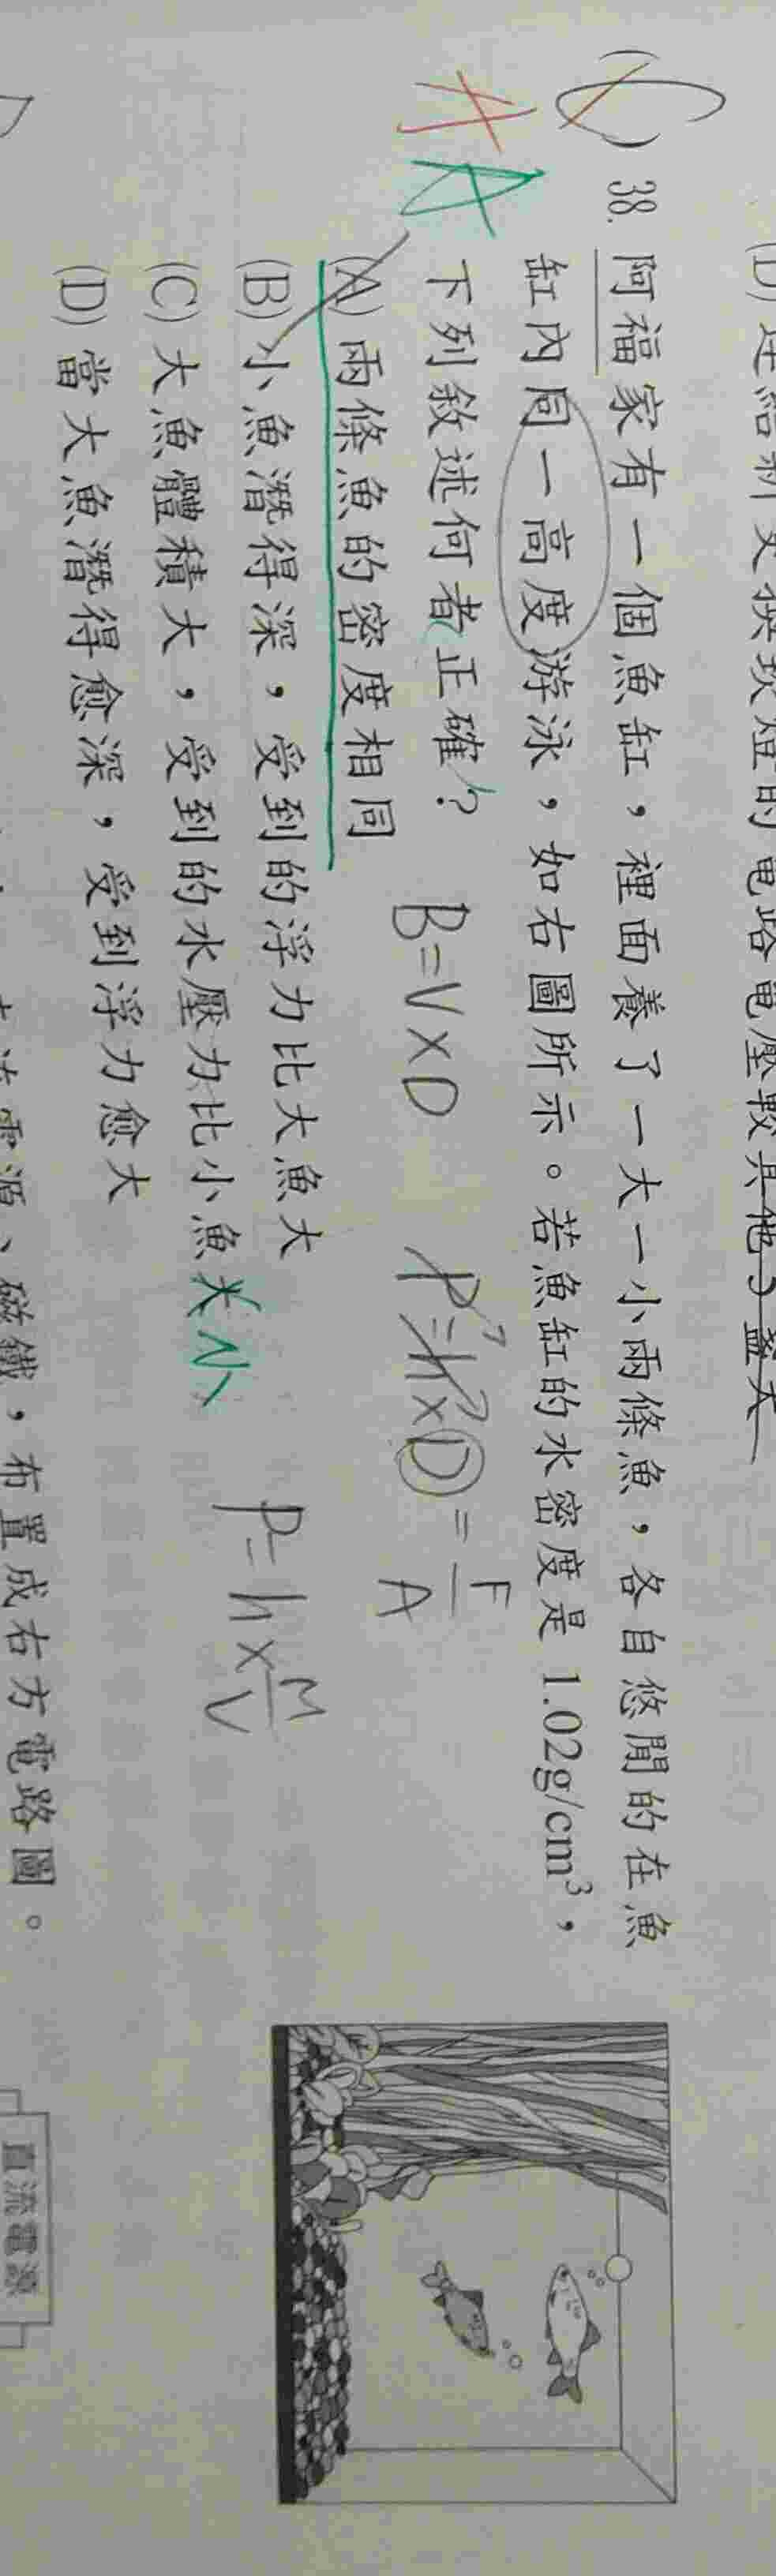 (D) 連結新
電路電壓較其他3盞大
(C) 38. 阿福家有一個魚缸，裡面養了一大一小兩條魚，各自悠閒的在魚
A A
缸內同一高度游泳，如右圖所示。若魚缸的水密度是 1.02g/cm³，
下列敘述何者正確？
B=V×D P=h×D=F/A
(A) 兩條魚的密度相同
(B) 小魚潛得深，受到的浮力比大魚大
P=h×M/V
(C) 大魚體積大，受到的水壓力比小魚大 小
(D) 當大魚潛得愈深，受到浮力愈大
磁鐵，布置成右方電路圖。
直流電源